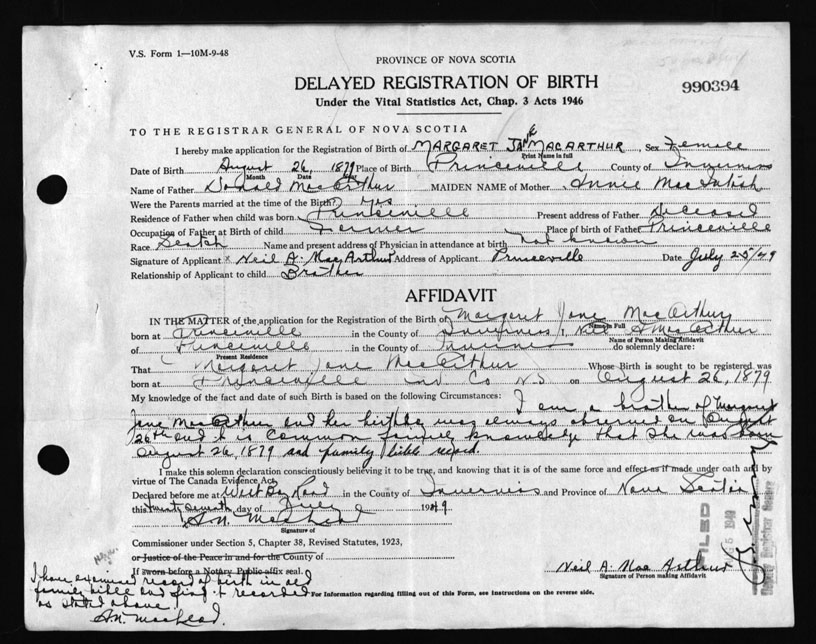 V.S. Form 1—10M-9-48
PROVINCE OF NOVA SCOTIA
DELAYED REGISTRATION OF BIRTH
990394
Under the Vital Statistics Act, Chap. 3 Acts 1946
TO THE REGISTRAR GENERAL OF NOVA SCOTIA
I hereby make application for the Registration of Birth of MARGARET JANE MACARTHUR, Sex Female
Print Name in full
Date of Birth August 26, 1879 Place of Birth Princeville County of Inverness
Month Date Year
Name of Father Donald MacArthur MAIDEN NAME of Mother Annie MacIntosh
Were the Parents married at the time of the Birth? Yes
Residence of Father when child was born Princeville Present address of Father Deceased
Occupation of Father at Birth of child Farmer Place of birth of Father Princeville
Race Scotch Name and present address of Physician in attendance at birth not known
Signature of Applicant x Neil A. MacArthur Address of Applicant Princeville Date July 25/49
Relationship of Applicant to child Brother
AFFIDAVIT
IN THE MATTER of the application for the Registration of the Birth of Margaret Jane MacArthur
Name in Full
born at Princeville in the County of Inverness, I, Neil A MacArthur
Name of Person Making Affidavit
of Princeville in the County of Inverness do solemnly declare:
Present Residence
That Margaret Jane MacArthur Whose Birth is sought to be registered was
born at Princeville Inv Co N.S on August 26, 1879
My knowledge of the fact and date of such Birth is based on the following Circumstances: I am a brother of Margaret
Jane MacArthur and her birthday was always observed on August
26th and it is common family knowledge that she was born
August 26, 1879 and family bible record.
I make this solemn declaration conscientiously believing it to be true, and knowing that it is of the same force and effect as if made under oath and by
virtue of The Canada Evidence Act,
Declared before me at West Bay Road in the County of Inverness and Province of Nova Scotia
this twenty seventh day of July 1949
A.N. MacLeod
Signature of
Commissioner under Section 5, Chapter 38, Revised Statutes, 1923,
or Justice of the Peace in and for the County of
If sworn before a Notary Public affix seal.
Neil A. MacArthur
Signature of Person making Affidavit
I have examined record of birth in old
family bible and find it recorded
as stated above.
A.N. MacLeod.
For Information regarding filling out of this Form, see Instructions on the reverse side.
FILED
1949